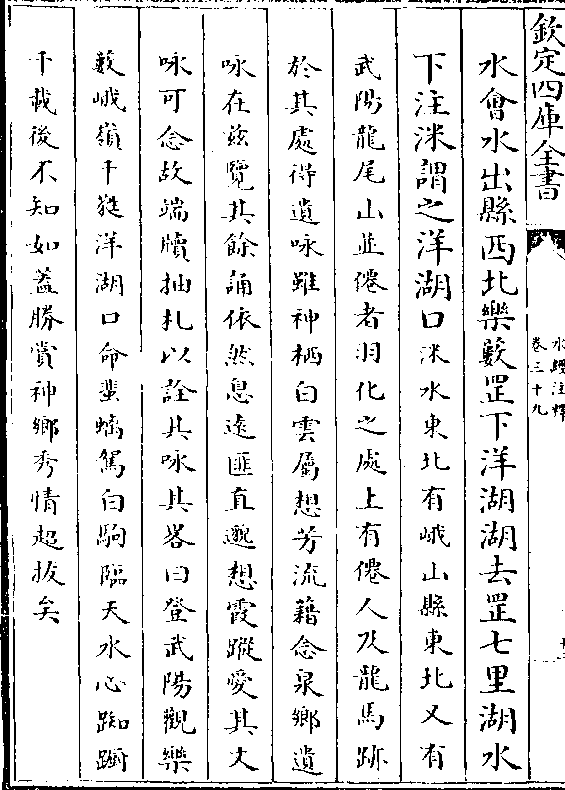 欽定四庫全書
水經注釋
卷三十九
水會水出縣西北樂藪罡下洋湖湖去罡七里湖水
下注洣謂之洋湖口洣水東北有峨山縣東北又有
武陽龍尾山並僊者羽化之處上有僊人及龍馬跡
於其處得遺咏雖神栖白雲屬想芳流藉念泉鄉遺
咏在兹覽其餘誦依然息逺匪直邈想霞蹤愛其文
咏可念故端牘抽札以詮其咏其畧曰登武陽觀樂
藪峨嶺千蕤洋湖口命蜚螭駕白駒臨天水心踟躕
千載後不知如葢勝賞神鄉秀情超拔矣